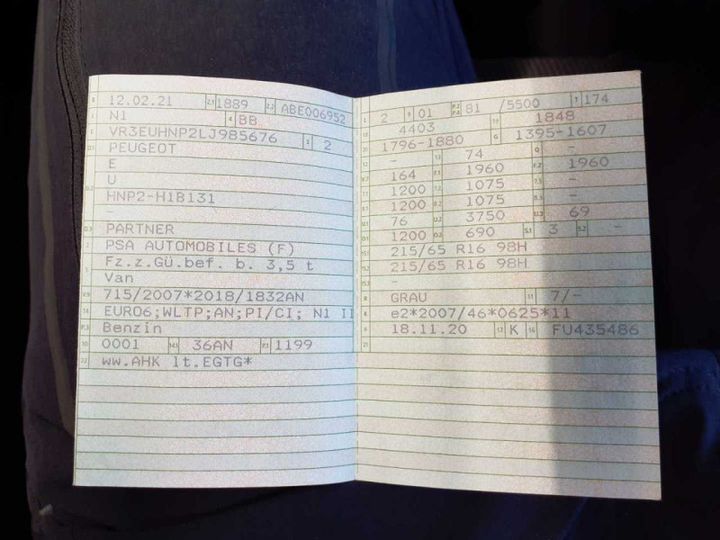 12.02.21 2.1 1889 2.2 ABE006952
N1 4 BB
VR3EUHNP2LJ985676 3 2
D.1 PEUGEOT
E
D.2 U
HNP2-H1B131
-
D.3 PARTNER
2 PSA AUTOMOBILES (F)
5 Fz.z.Gü.bef. b. 3,5 t
Van
V.9 715/2007*2018/1832AN
14 EURO6;WLTP;AN;PI/CI; N1 II
P.3 Benzin
10 0001 14.1 36AN P.1 1199
22 ww.AHK lt.EGTG*
L 2 9 01 P.2 P.4 81 /5500 T 174
18 4403 19 1848
20 1796-1880 G 1395-1607
- 13 74 Q -
164 F.1 1960 F.2 1960
1200 1075 -
1200 1075 -
76 U.2 3750 U.3 69
1200 O.2 690 S.1 3 S.2 -
15.1 215/65 R16 98H
15.2 215/65 R16 98H
15.3 -
R GRAU 11 7/-
K e2*2007/46*0625*11
6 18.11.20 17 K 16 FU435486
21